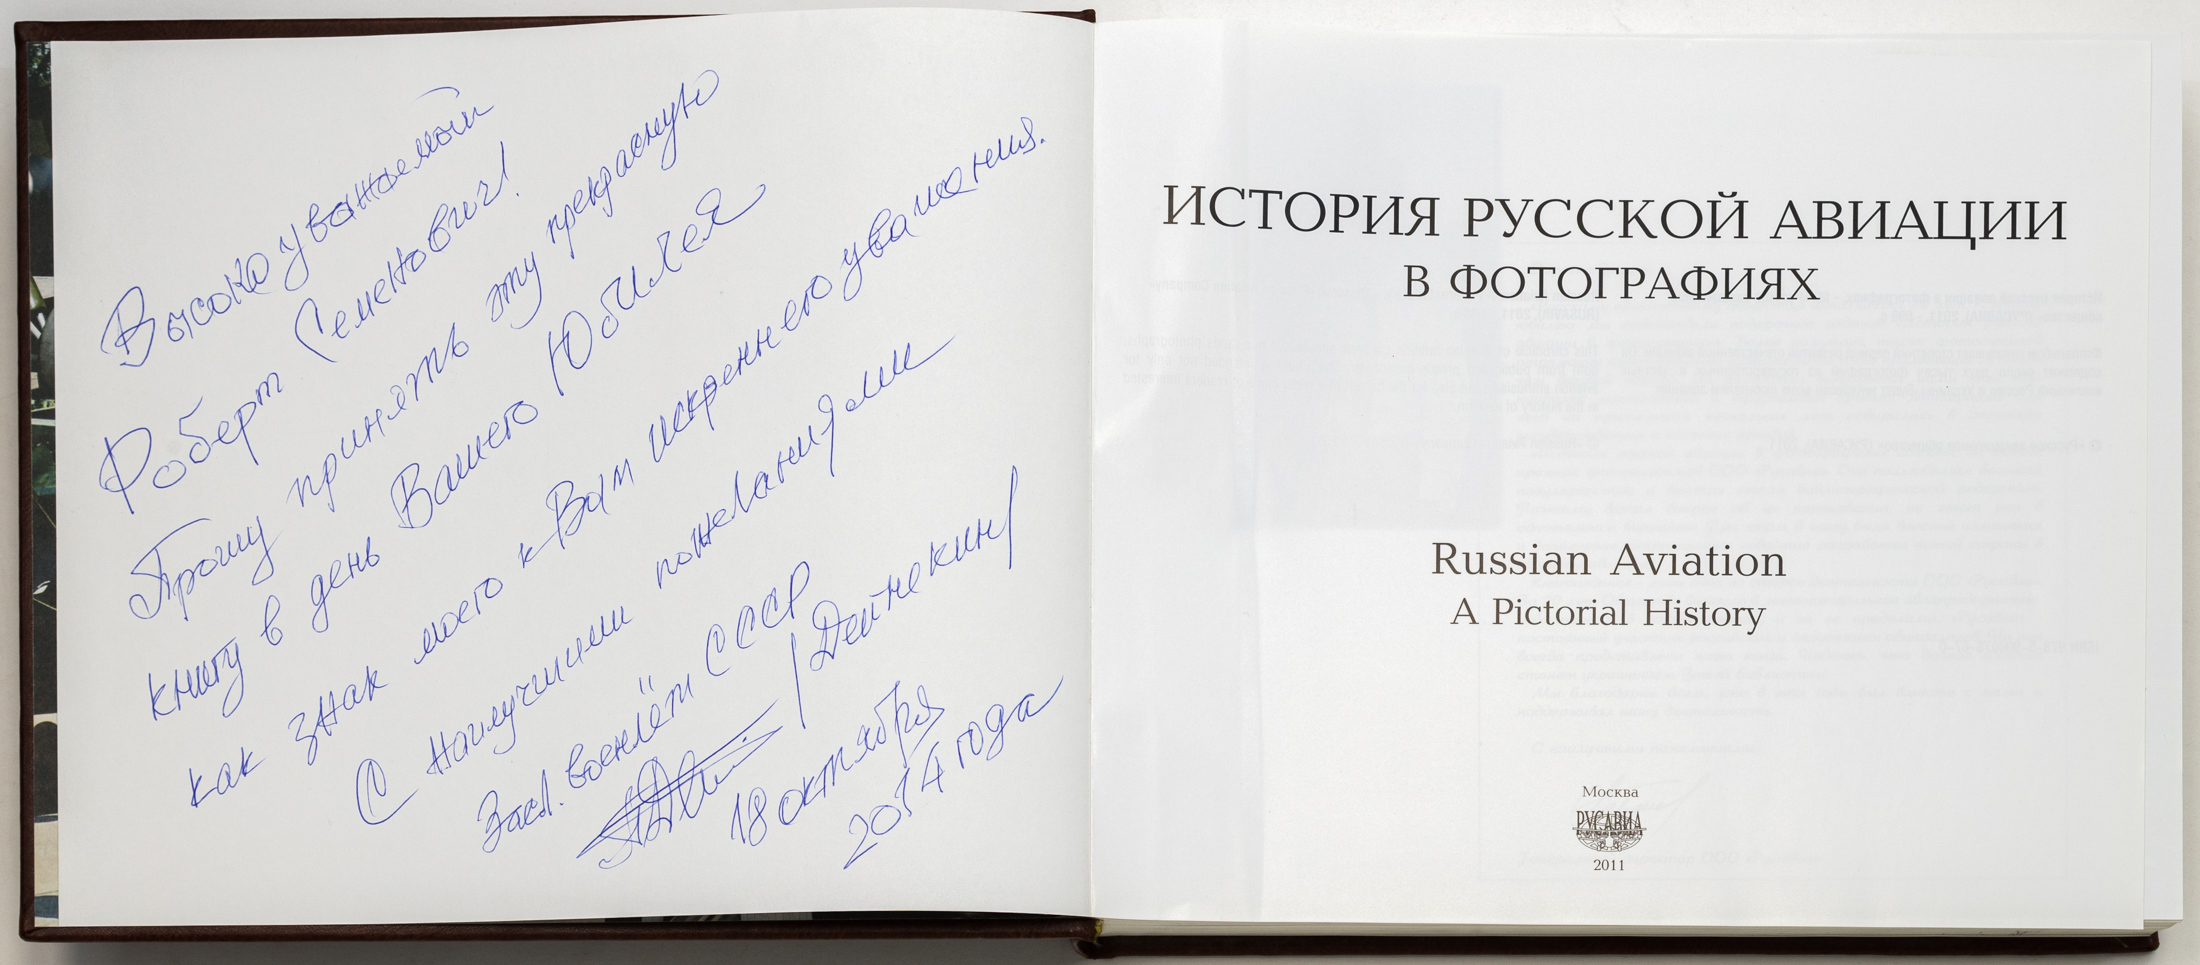 Высокоуважаемый
Роберт Семенович!
Прошу принять эту прекрасную
книгу в день Вашего Юбилея
как знак моего к Вам искреннего уважения.
С наилучшими пожеланиями
Засл. военлёт СССР
/Дейнекин/
18 октября
2014 года
ИСТОРИЯ РУССКОЙ АВИАЦИИ
В ФОТОГРАФИЯХ
Russian Aviation
A Pictorial History
Москва
РУСАВИА
2011